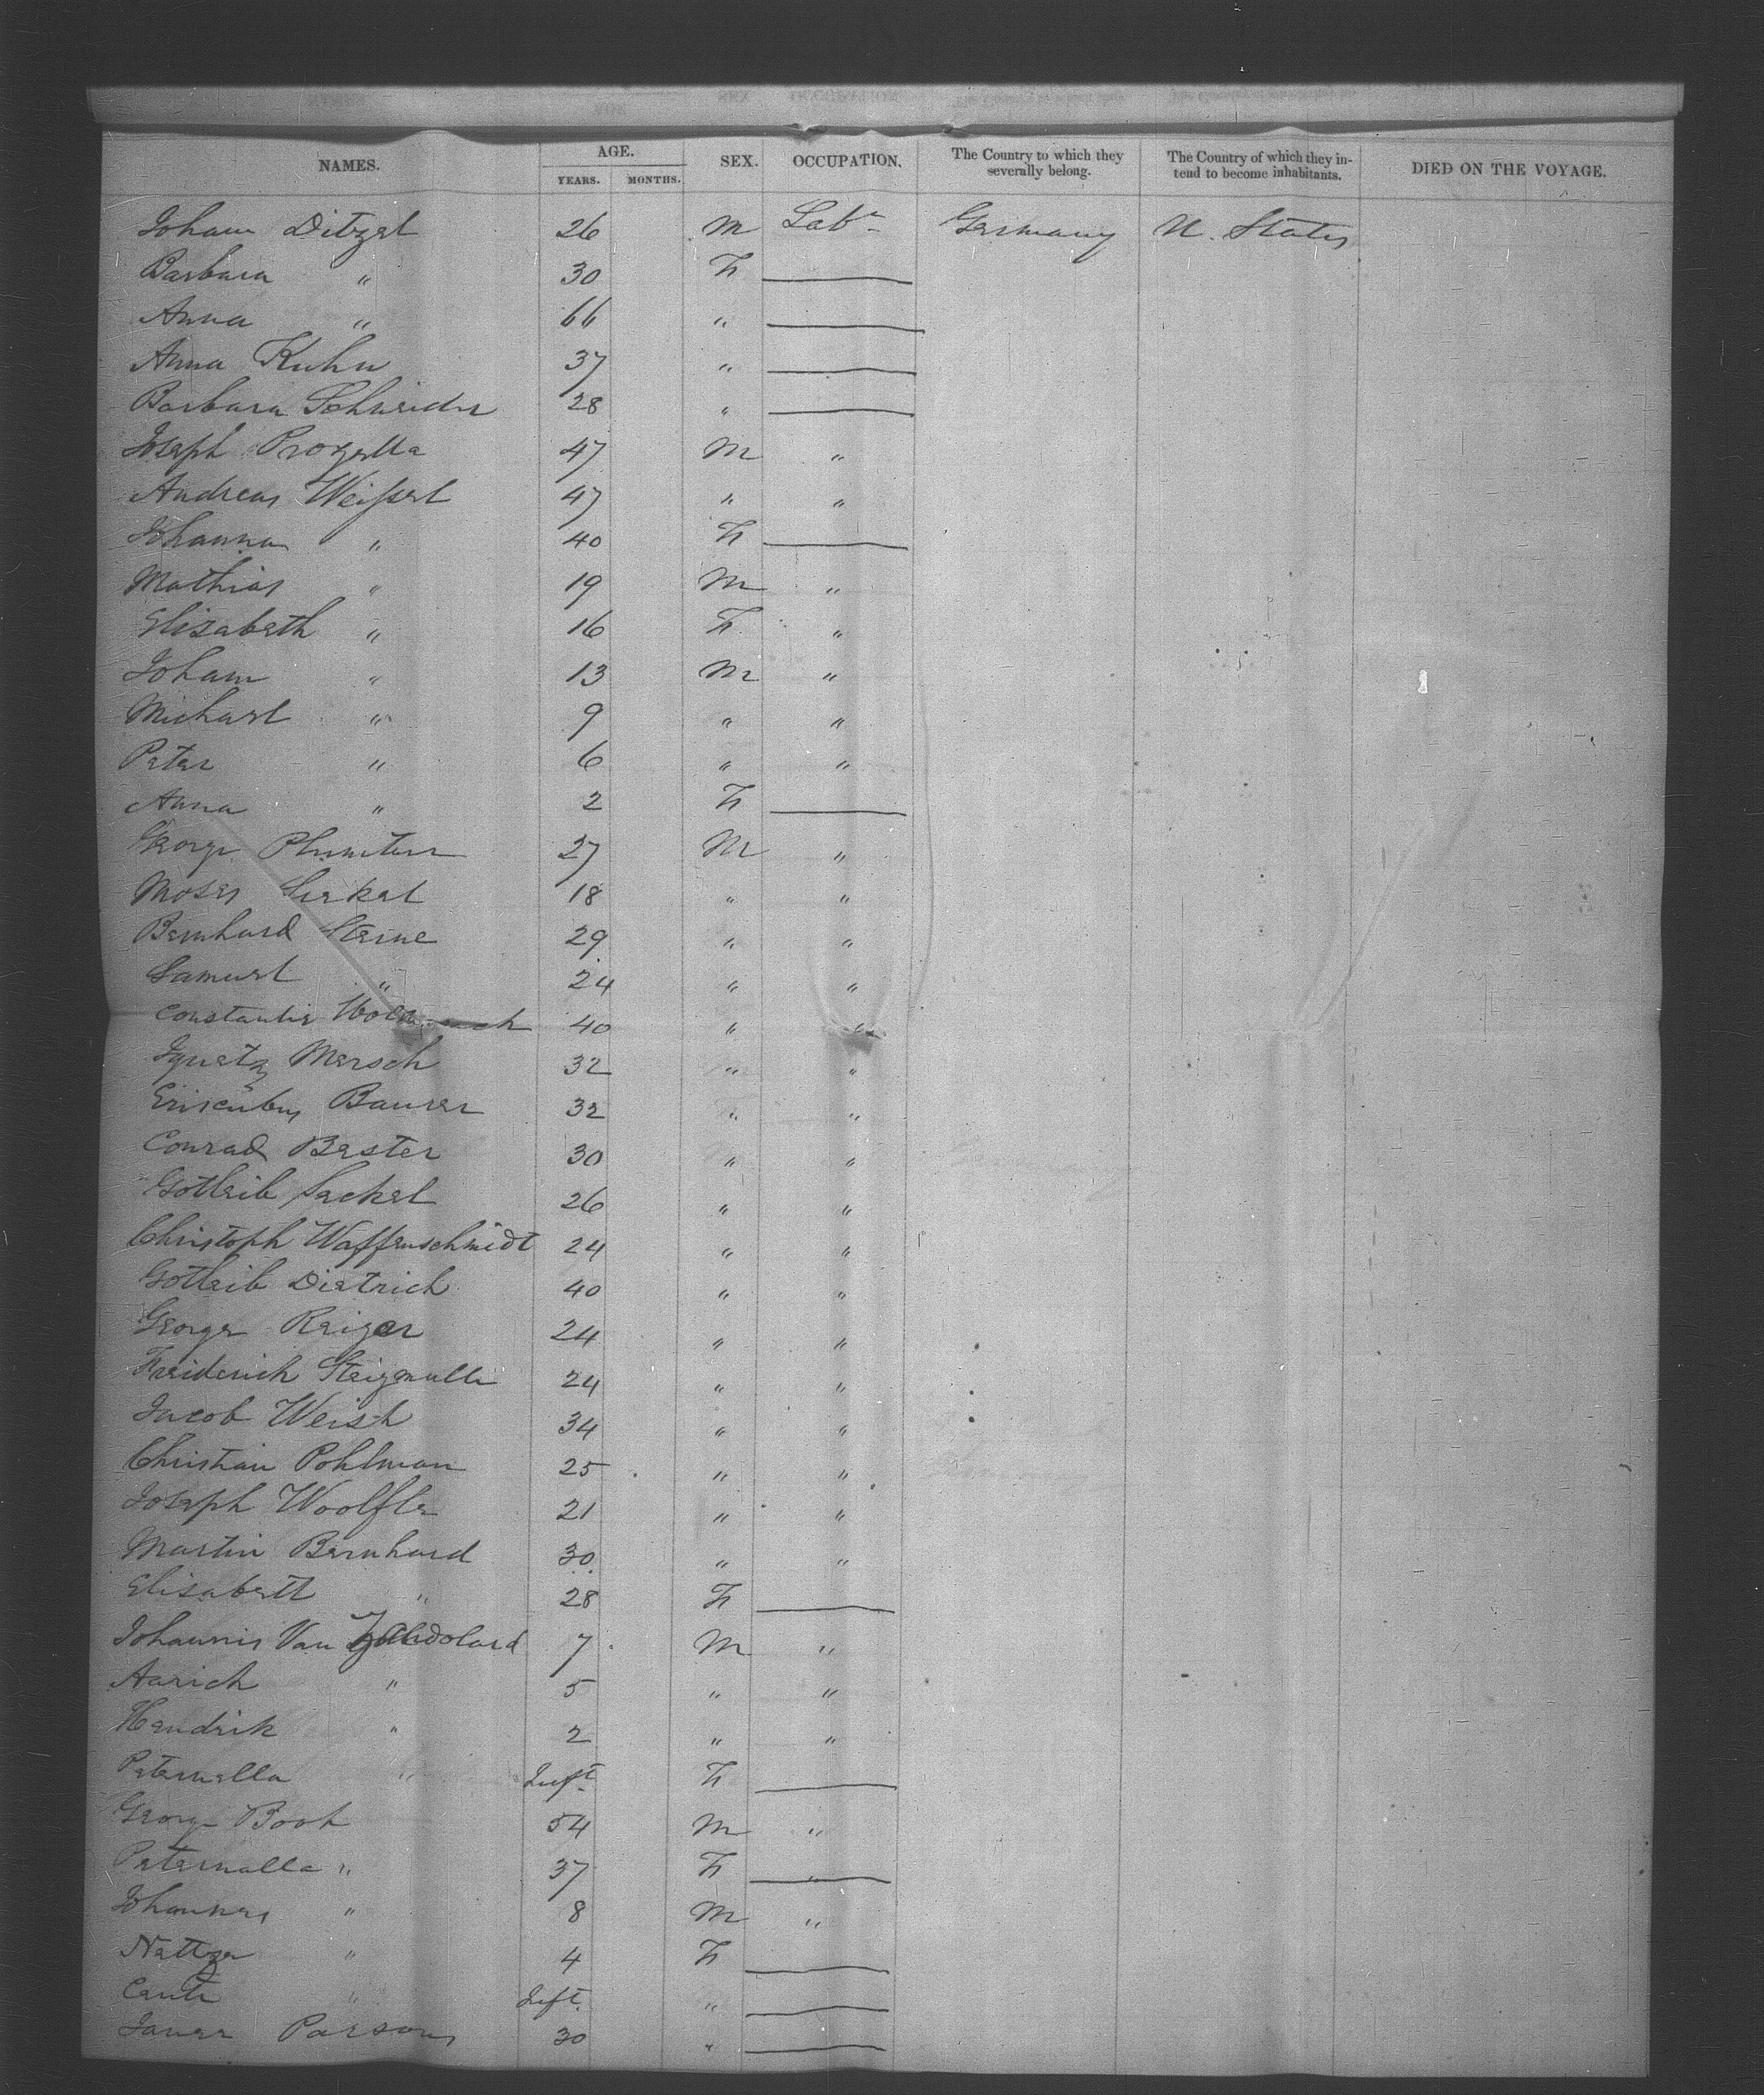 NAMES. AGE. YEARS. MONTHS. SEX. OCCUPATION. The Country to which they severally belong. The Country of which they intend to become inhabitants. DIED ON THE VOYAGE.
Johann Ditzel 26 M Labr Germany U. States
Barbara " 30 F
Anna " 66 "
Anna Kuhn 37 "
Barbara Schneider 28 "
Joseph 47 M "
Andreas Weissel 47 " "
Johanna " 40 F
Mathias " 19 M "
Elizabeth " 16 F "
Johann " 13 M "
Michael " 9 " "
Peter " 6 " "
Anna " 2 F
George 27 M "
Moses 18 " "
Bernhard Sterne 29 " "
Samuel " 24 " "
40 " "
Ignatz Mersch 32 " "
Bauer 32 " "
Conrad Bester 30 " "
Gotleib Seckel 26 " "
Christoph Waffenschmidt 24 " "
Gotleib Dietrich 40 " "
George Reiger 24 " "
Freiderich 24 " "
Jacob 34 " "
Christian Pohlman 25 " "
Joseph Woolfle 21 " "
Martin Bernhard 30 " "
Elisabett " 28 F
Johannis Van 7 M "
Aarich " 5 " "
Hendrik " 2 " "
Peternella " Inft F
George Booh 54 M "
Peternella " 37 F "
Johannes " 8 M "
" 4 F
" Inft "
Parsons 30 "